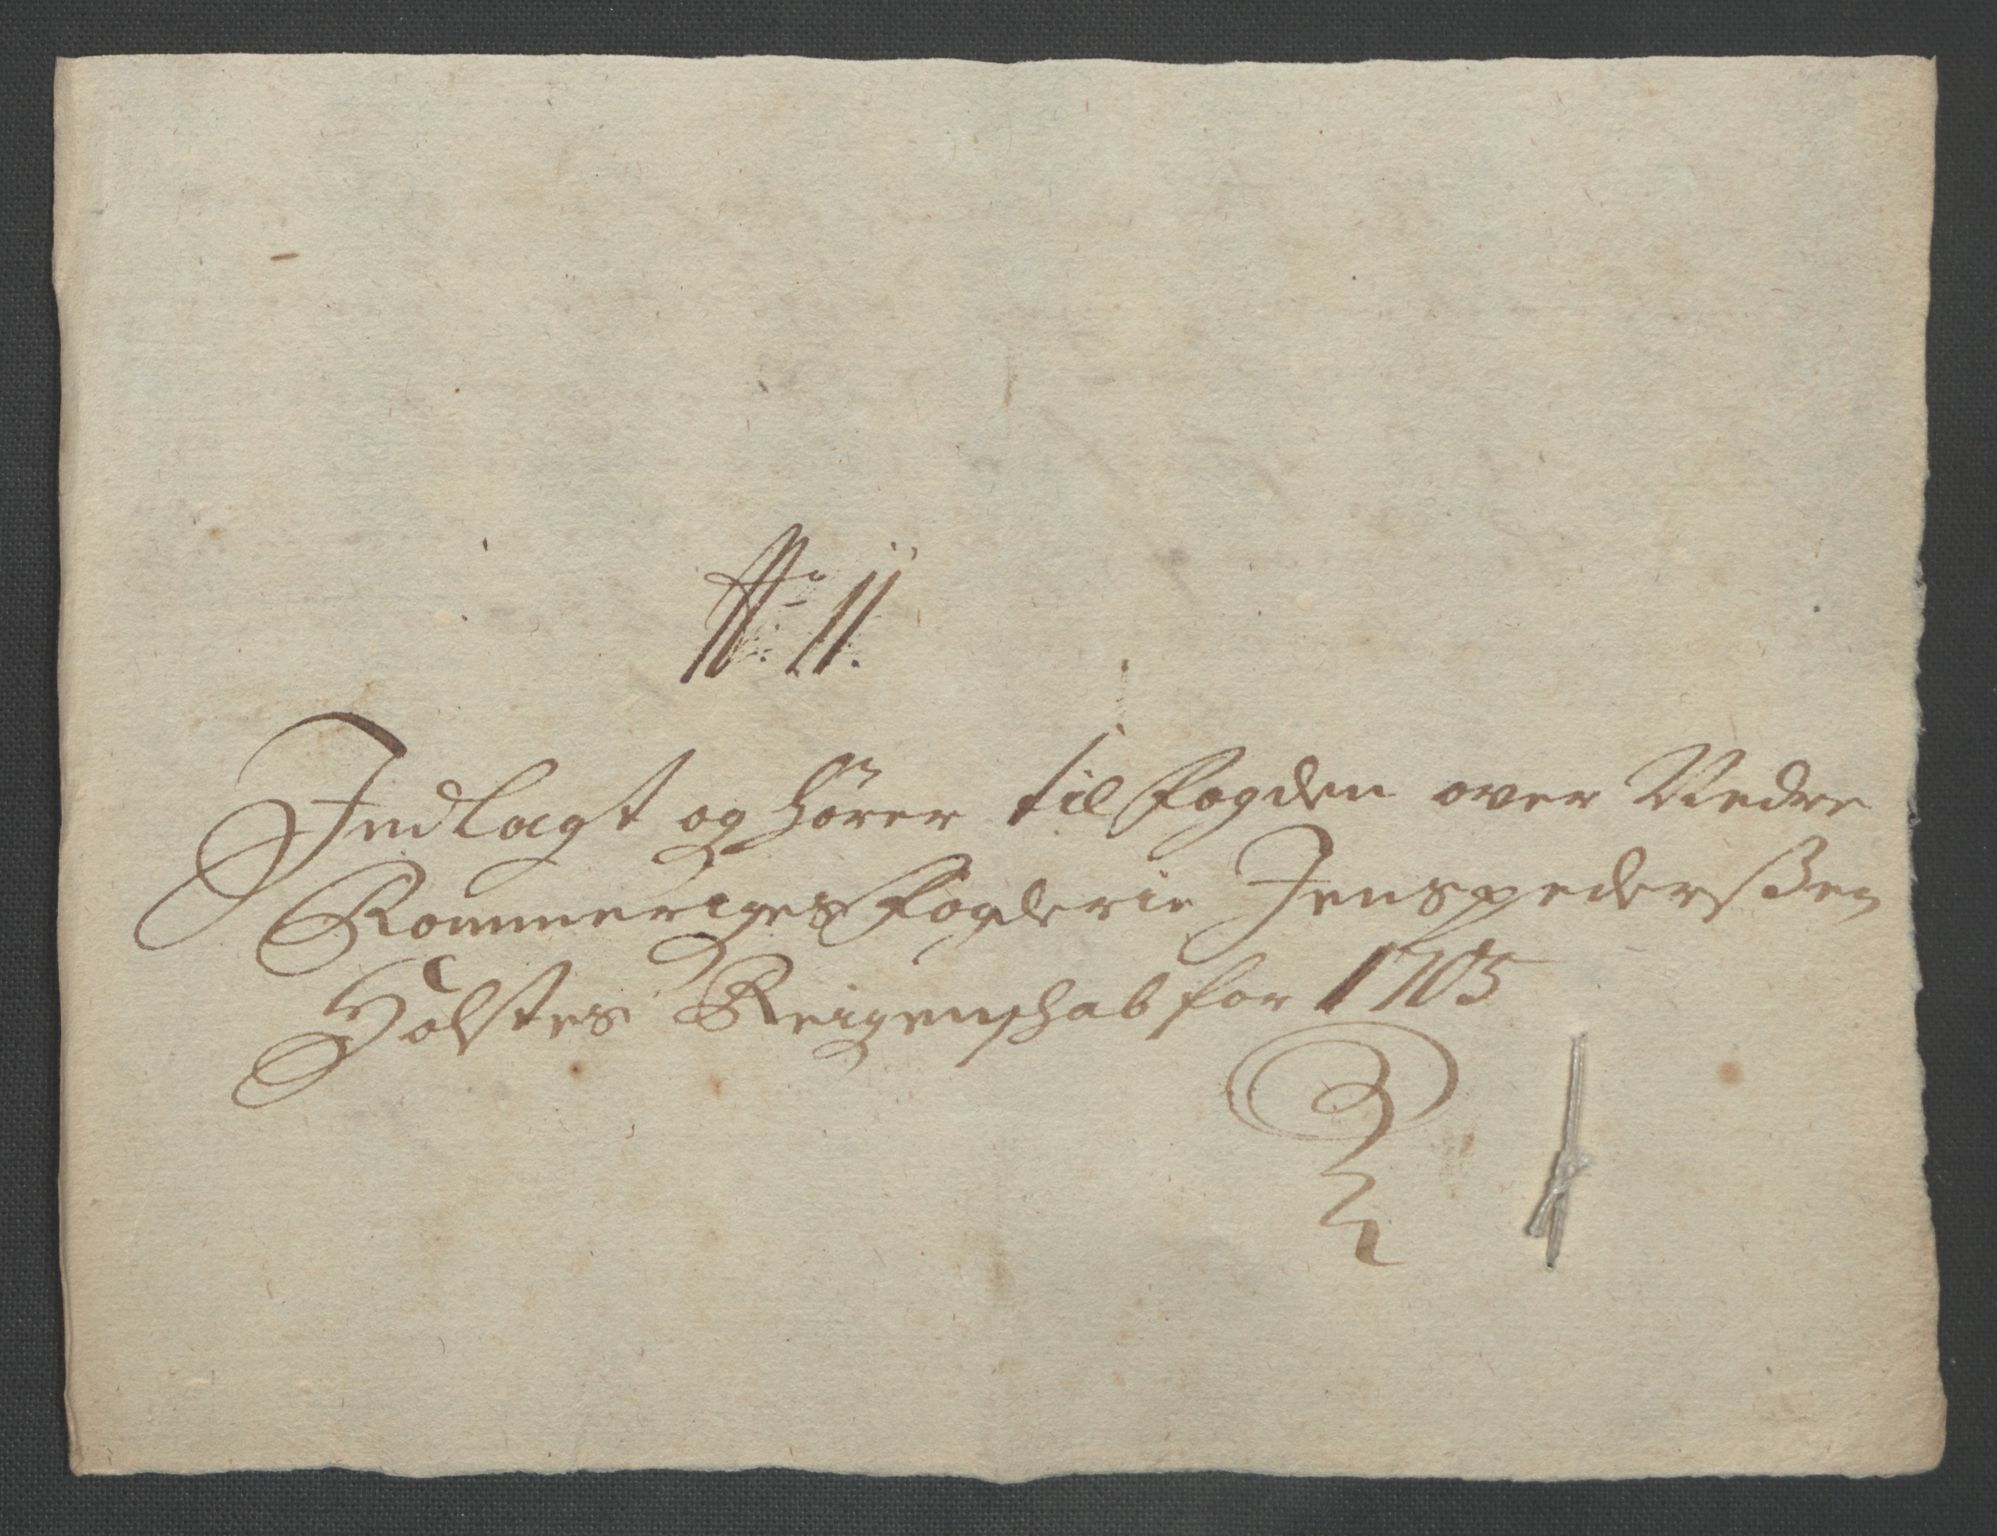 No. 11.
Indlagt og hörer til fogden over Nedre
Rommeriges fogderie Jens pederßen
Holstes Reigenschab for 1705